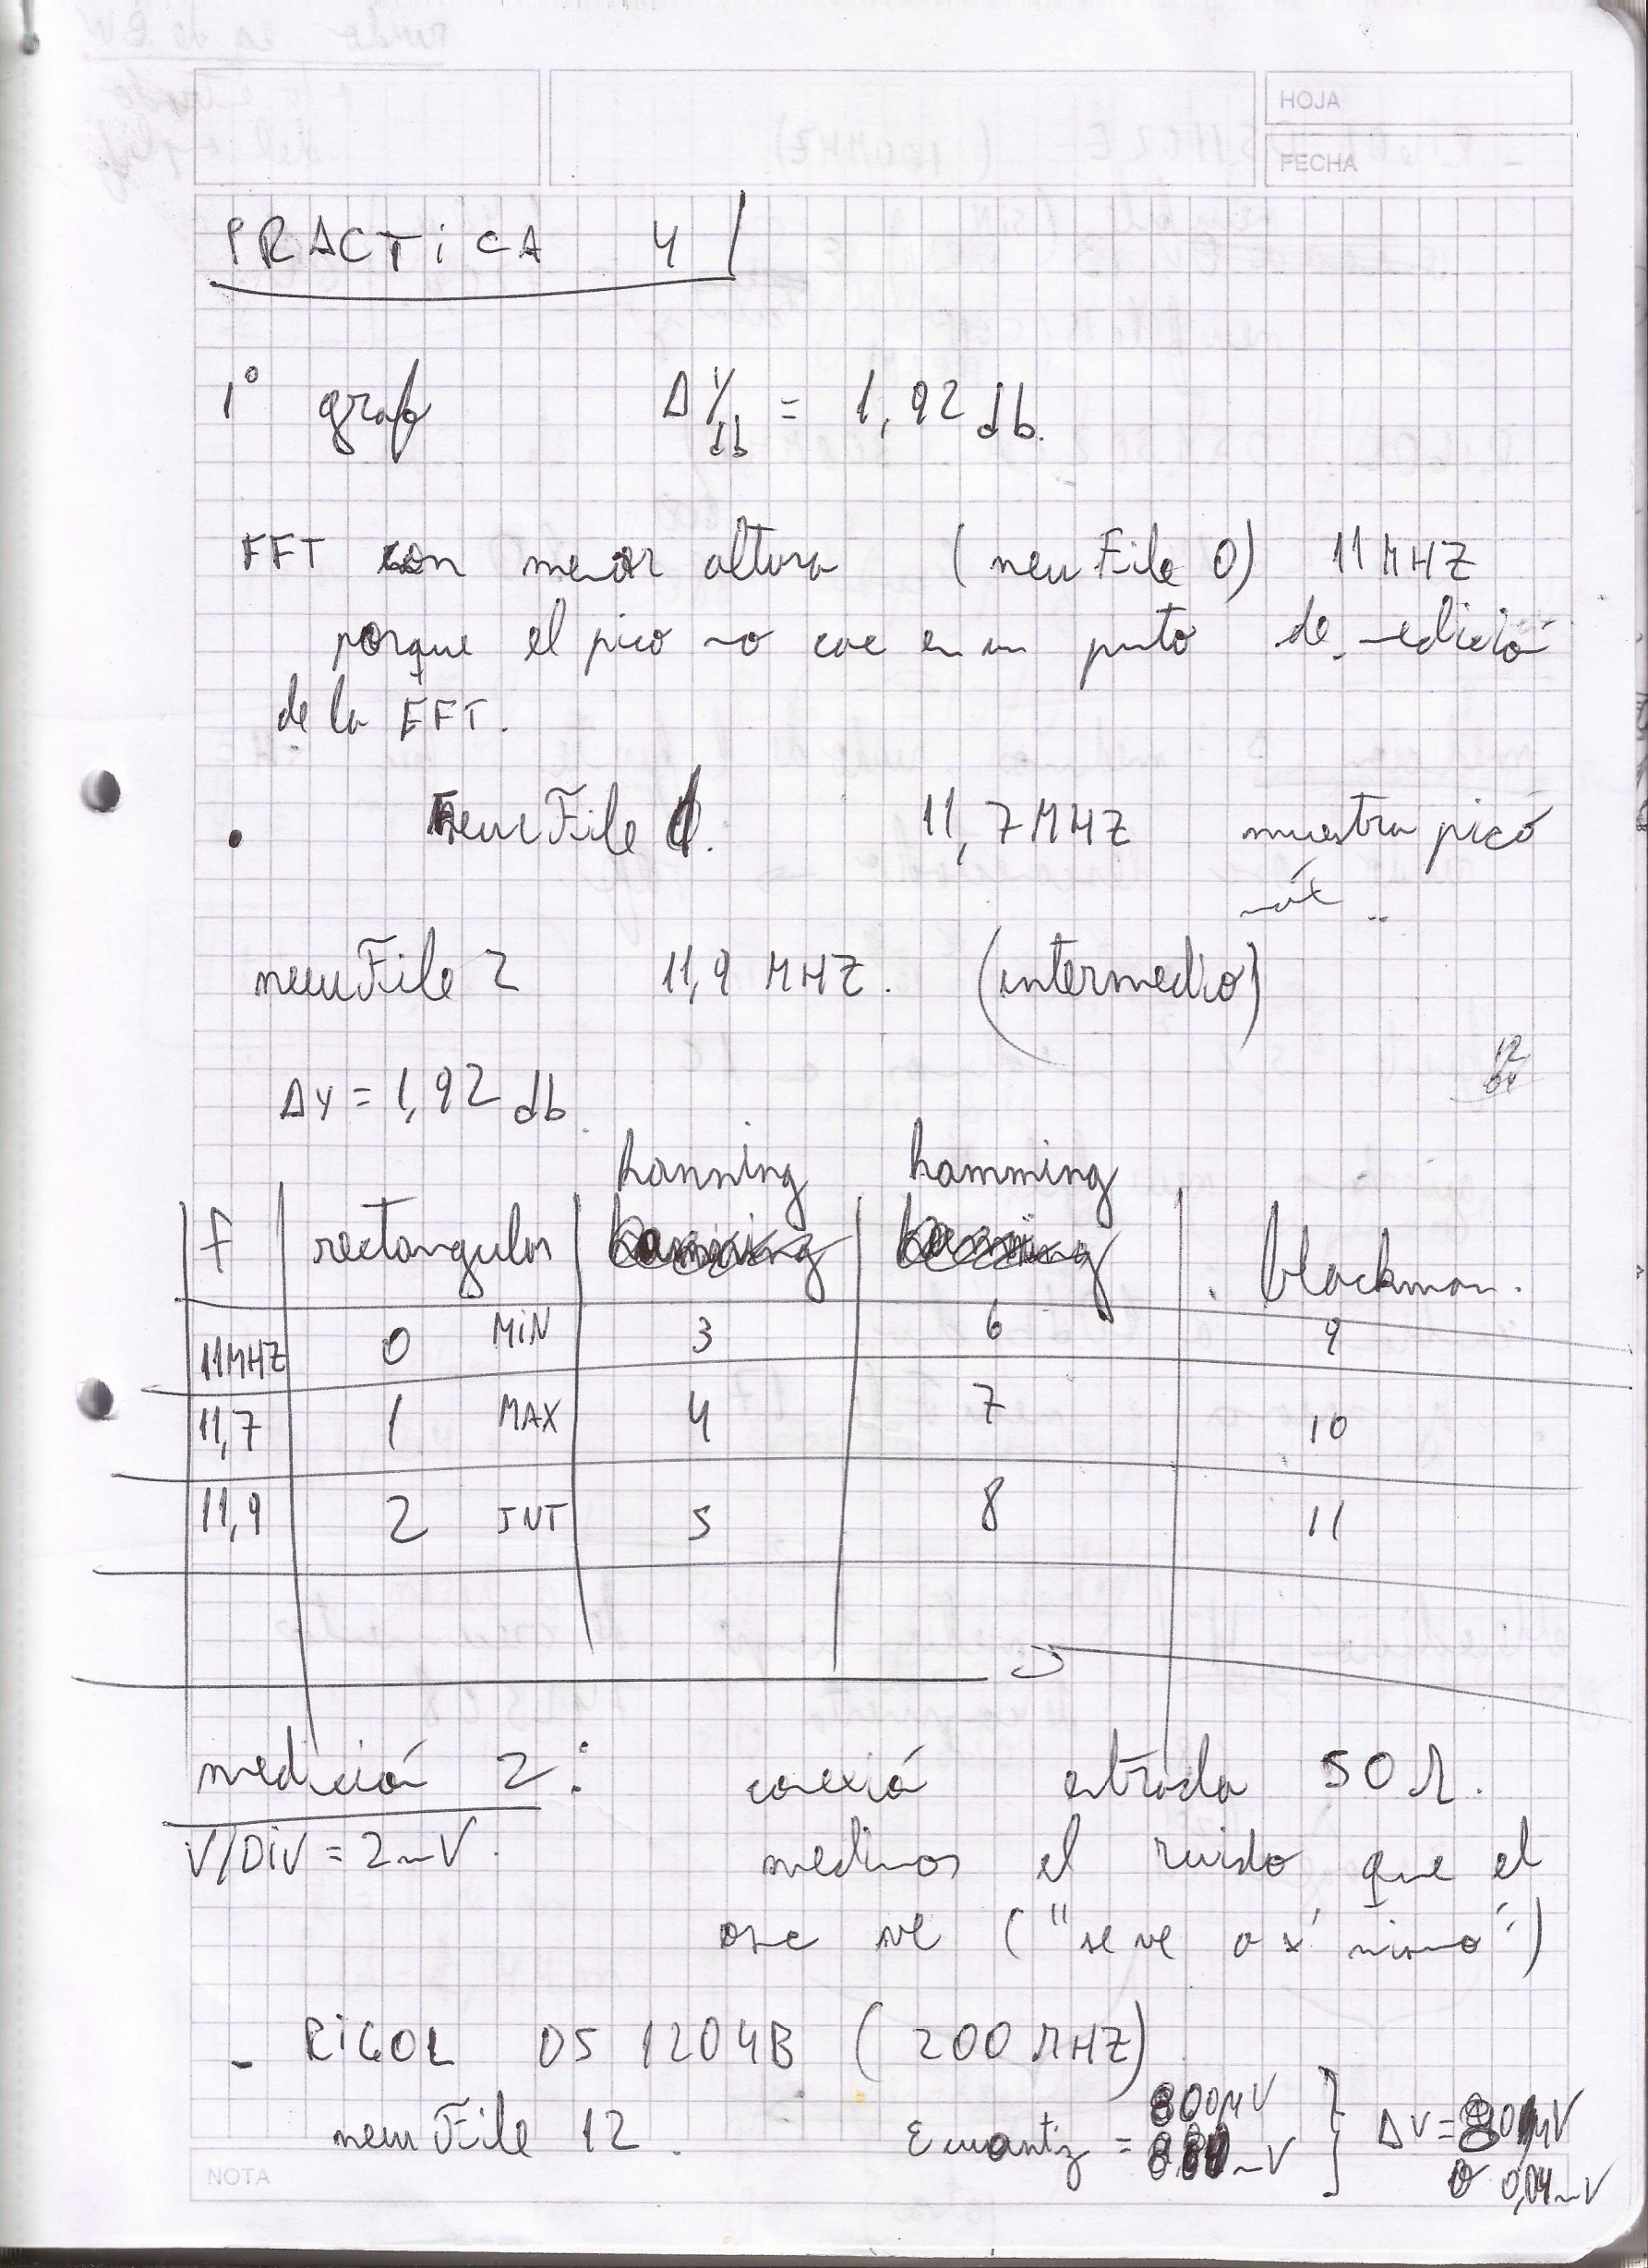 HOJA
FECHA
PRACTICA 4
1° graf ΔY/db = 1,92 db.
FFT con menor altura (newFile 0) 11 MHZ
porque el pico no cae en un punto de medición
de la FFT.
• newFile 1. 11,7 MHZ muestra pico
máx
newFile 2 11,9 MHZ. (intermedio)
ΔY = 1,92 db
hanning hamming
f rectangulos blackman.
11MHZ 0 MIN 3 6 9
11,7 1 MAX 4 7 10
11,9 2 INT 5 8 11
medición 2: conexió entrada 50 Ω.
V/DIV = 2mV. medimos el ruido que el
osc ve ("se ve a sí mismo")
- RIGOL DS 1204B (200 MHZ)
800μV
newFile 12. Ecuantiz = mV } ΔV =
0,04mV
NOTA